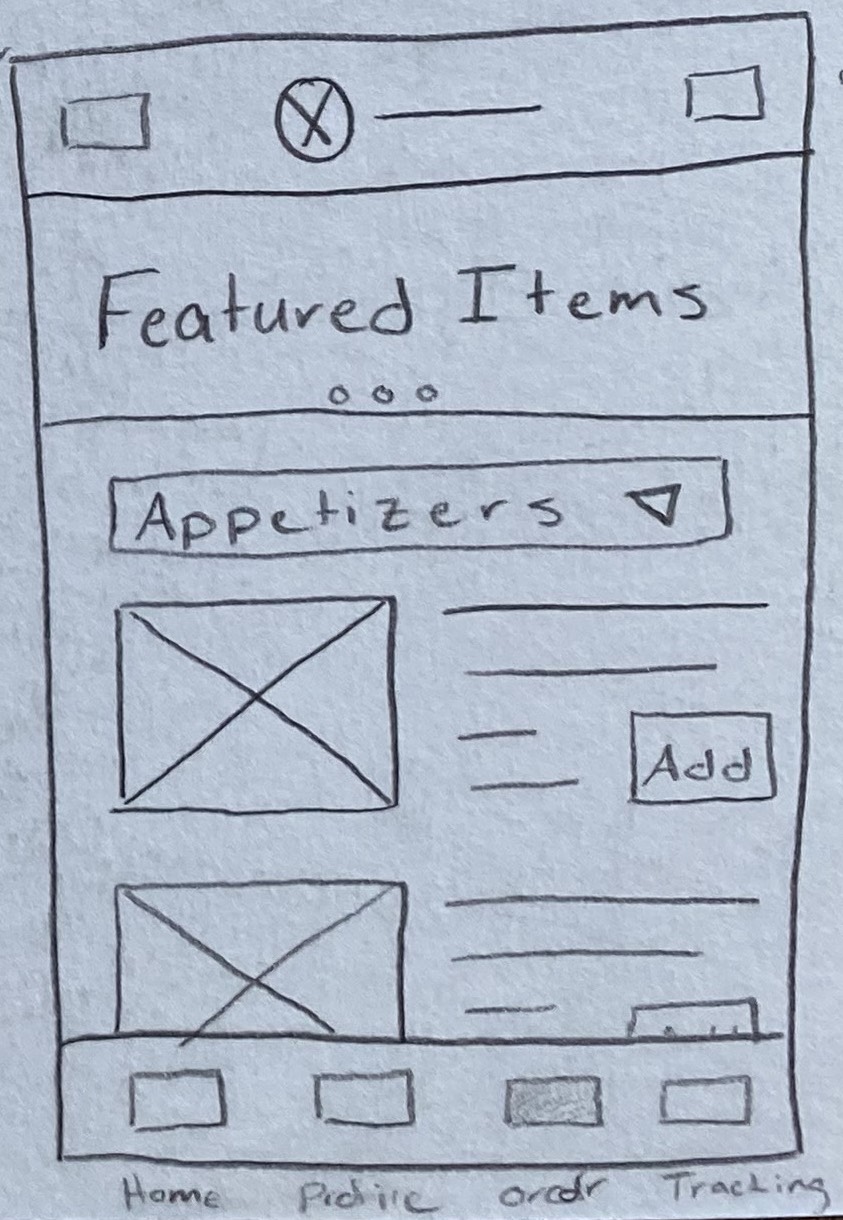 Featured Items
Appetizers
Add
Home Profile order Tracking